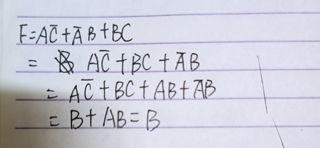 F=AC̅+A̅B+BC
= AC̅+BC+A̅B
= AC̅+BC+AB+A̅B
= B+AB=B